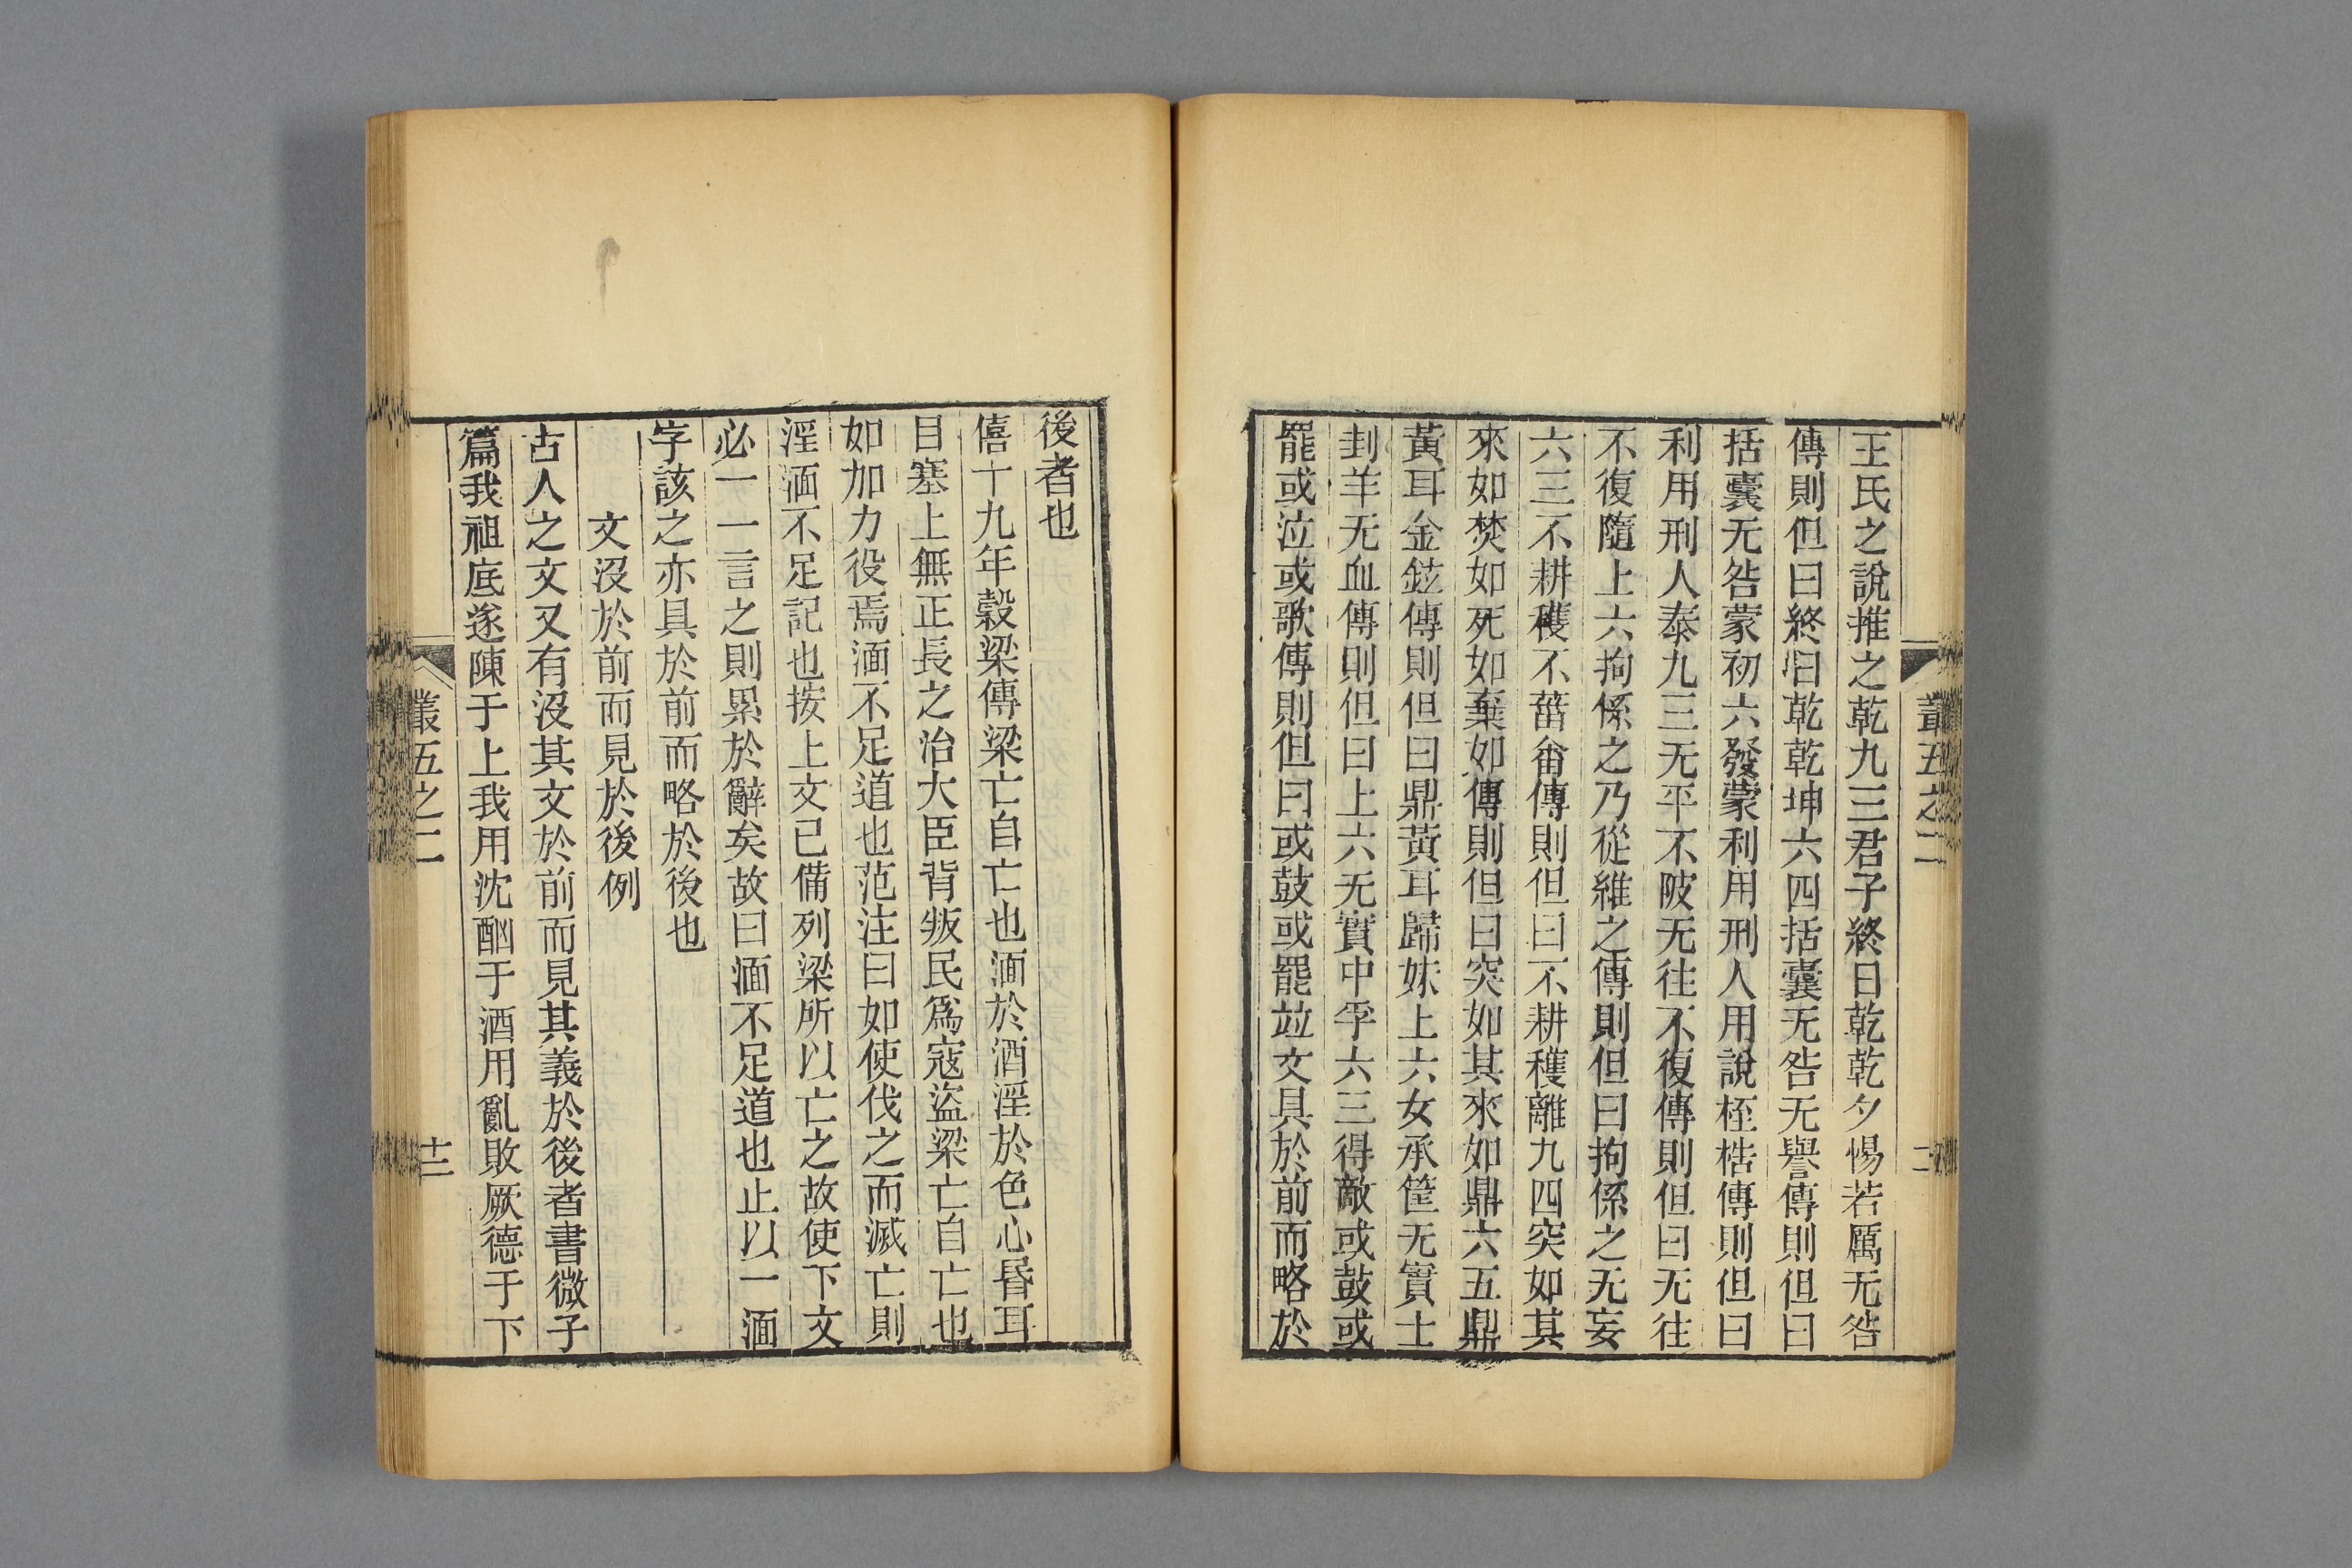 王氏之說推之乾九三君子終日乾乾夕惕若厲无咎
傳則但曰終日乾乾坤六四括囊无咎无譽傳則但曰
括囊无咎蒙初六發蒙利用刑人用說桎梏傳則但曰
利用刑人泰九三无平不陂无往不復傳則但曰无往
不復隨上六拘係之乃從維之傳則但曰拘係之无妄
六三不耕穫不菑畬傳則但曰不耕穫離九四突如其
來如焚如死如棄如傳則但曰突如其來如鼎六五鼎
黃耳金鉉傳則但曰鼎黃耳歸妹上六女承筐无實士
刲羊无血傳則但曰上六无實中孚六三得敵或鼓或
罷或泣或歌傳則但曰或鼓或罷竝文具於前而略於
叢五之二
後者也
僖十九年穀梁傳梁亡自亡也湎於酒淫於色心昬耳
目塞上無正長之治大臣背叛民爲寇盜梁亡自亡也
如加力役焉湎不足道也范注曰如使伐之而滅亡則
淫湎不足記也按上文已備列梁所以亡之故使下文
必一一言之則累於辭矣故曰湎不足道也止以一湎
字該之亦具於前而略於後也
文沒於前而見於後例
古人之文又有沒其文於前而見其義於後者書微子
篇我祖底遂陳于上我用沈酗于酒用亂敗厥德于下
叢五之二
十二